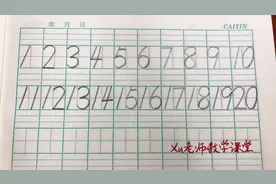 年 月 日 CAIYIN
1 2 3 4 5 6 7 8 9 10
11 12 13 14 15 16 17 18 19 20
Xu老师教学课堂